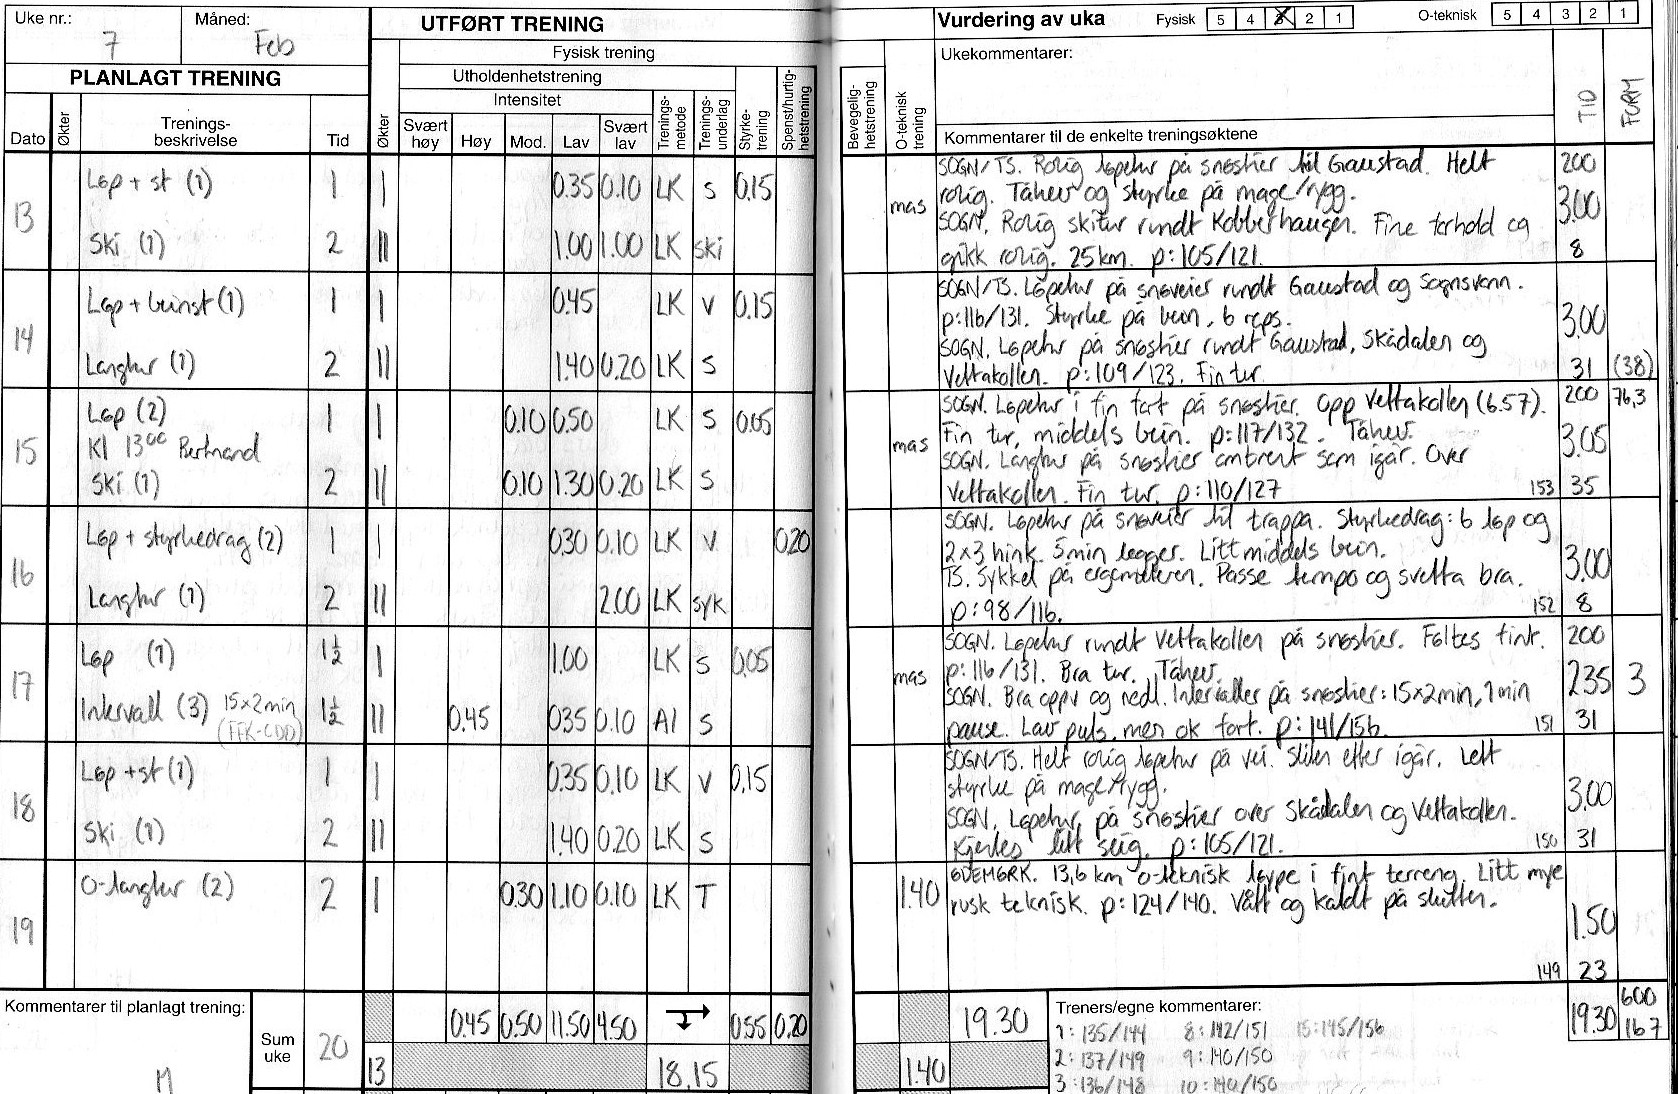 Uke nr.: 7 Måned: Feb
UTFØRT TRENING
Vurdering av uka Fysisk 5 4 3 2 1 O-teknisk 5 4 3 2 1
PLANLAGT TRENING
Fysisk trening
Utholdenhetstrening
Intensitet
Ukekommentarer:
Dato Økter Trenings-beskrivelse Tid Økter Svært høy Høy Mod. Lav Svært lav Trenings-metode Trenings-underlag Styrke-trening Spenst/hurtig-hetstrening Bevegelig-hetstrening O-teknisk trening
Kommentarer til de enkelte treningsøktene TID FORM
13
Løp + st (1) 1 I 0.35 0.10 LK S 0.15
SOGN/TS. Rolig løpetur på snøstier til Gaustad. Helt 200
mas rolig. Tåhev og styrke på mage/rygg. 3.00
Ski (1) 2 II 1.00 1.00 LK Ski
SOGN. Rolig skitur rundt Kobberhaugen. Fine forhold og
gikk rolig. 25 km. p:105/121. 8
14
Løp + beinst (1) 1 I 0.45 LK V 0.15
SOGN/TS. Løpetur på snøveier rundt Gaustad og Sognsvann.
p:116/131. Styrke på bein, 6 reps. 3.00
Langtur (1) 2 II 1.40 0.20 LK S
SOGN. Løpetur på snøstier rundt Gaustad, Skådalen og
Vettakollen. p:109/123. Fin tur. 31 (38)
15
Løp (2) 1 I 0.10 0.50 LK S 0.05
Kl 13 00 Bertrand
SOGN. Løpetur i fin fart på snøstier. Opp Vettakollen (6.57). 200 76,3
mas Fin tur, middels bein. p:117/132. Tåhev. 3.05
Ski (1) 2 II 0.10 1.30 0.20 LK S
SOGN. Langtur på snøstier omtrent som igår. Over
Vettakollen. Fin tur. p:110/127 153 35
16
Løp + styrkedrag (2) 1 I 0.30 0.10 LK V 0.20
SOGN. Løpetur på snøveier til trappa. Styrkedrag: 6 løp og
2x3 hink. 5min legger. Litt middels bein. 3.00
Langtur (1) 2 II 2.00 LK syk
TS. Sykkel på ergometeren. Passe tempo og svetta bra.
p:98/116. 152 8
17
Løp (1) 1½ I 1.00 LK S 0.05
SOGN. Løpetur rundt Vettakollen på snøstier. Føltes fint. 200
mas p:116/131. Bra tur. Tåhev. 2.35 3
Intervall (3) 15x2min 1½ II 0.45 0.35 0.10 AI S
SOGN. Bra oppv og nedl. Intervaller på snøstier: 15x2min, 1min
pause. Lav puls, men ok fart. p:141/156. 151 31
18
Løp + st (1) 1 I 0.35 0.10 LK V 0.15
SOGN/TS. Helt rolig løpetur på vei. Sliten etter igår. Lett
styrke på mage/rygg. 3.00
Ski (1) 2 II 1.40 0.20 LK S
SOGN. Løpetur på snøstier over Skådalen og Vettakollen.
Kjentes litt seig. p:105/121. 150 31
19
O-langtur (2) 2 I 0.30 1.10 0.10 LK T 1.40
13,6 km o-teknisk løype i fint terreng. Litt mye
rusk teknisk. p:124/140. Vått og kaldt på slutten. 1.50
149 23
Kommentarer til planlagt trening:
Sum uke 20 0.45 0.50 11.50 4.50 0.55 0.20 19.30
13 18.15 1.40
Treners/egne kommentarer: 19.30 600 167
1:135/144 8:142/151 15:145/156
2:137/149 9:140/150
3:136/148 10:140/150